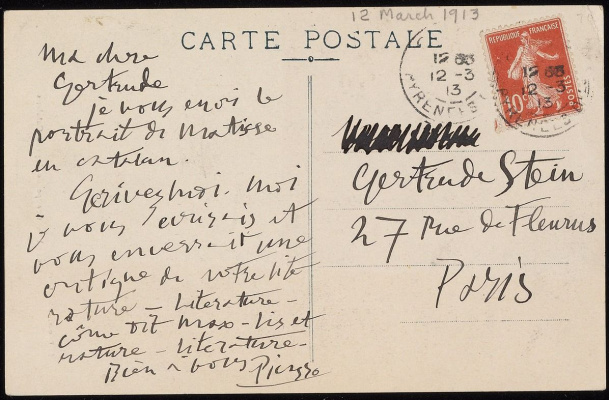 12 March 1913
CARTE POSTALE
REPUBLIQUE FRANÇAISE
POSTES
10
12-3
13
12-3
13
Ma chere
Gertrude
je vous envoi le
portrait de Matisse
en catalan.
Ecrivez moi. Moi
je vous ecrirais et
vous enverrait une
critique de votre lite
rature – Literature –
côme dit Max – Lis et
rature – Literature –
Bien à vous Picasso
Gertrude Stein
27 Rue de Fleurus
Paris